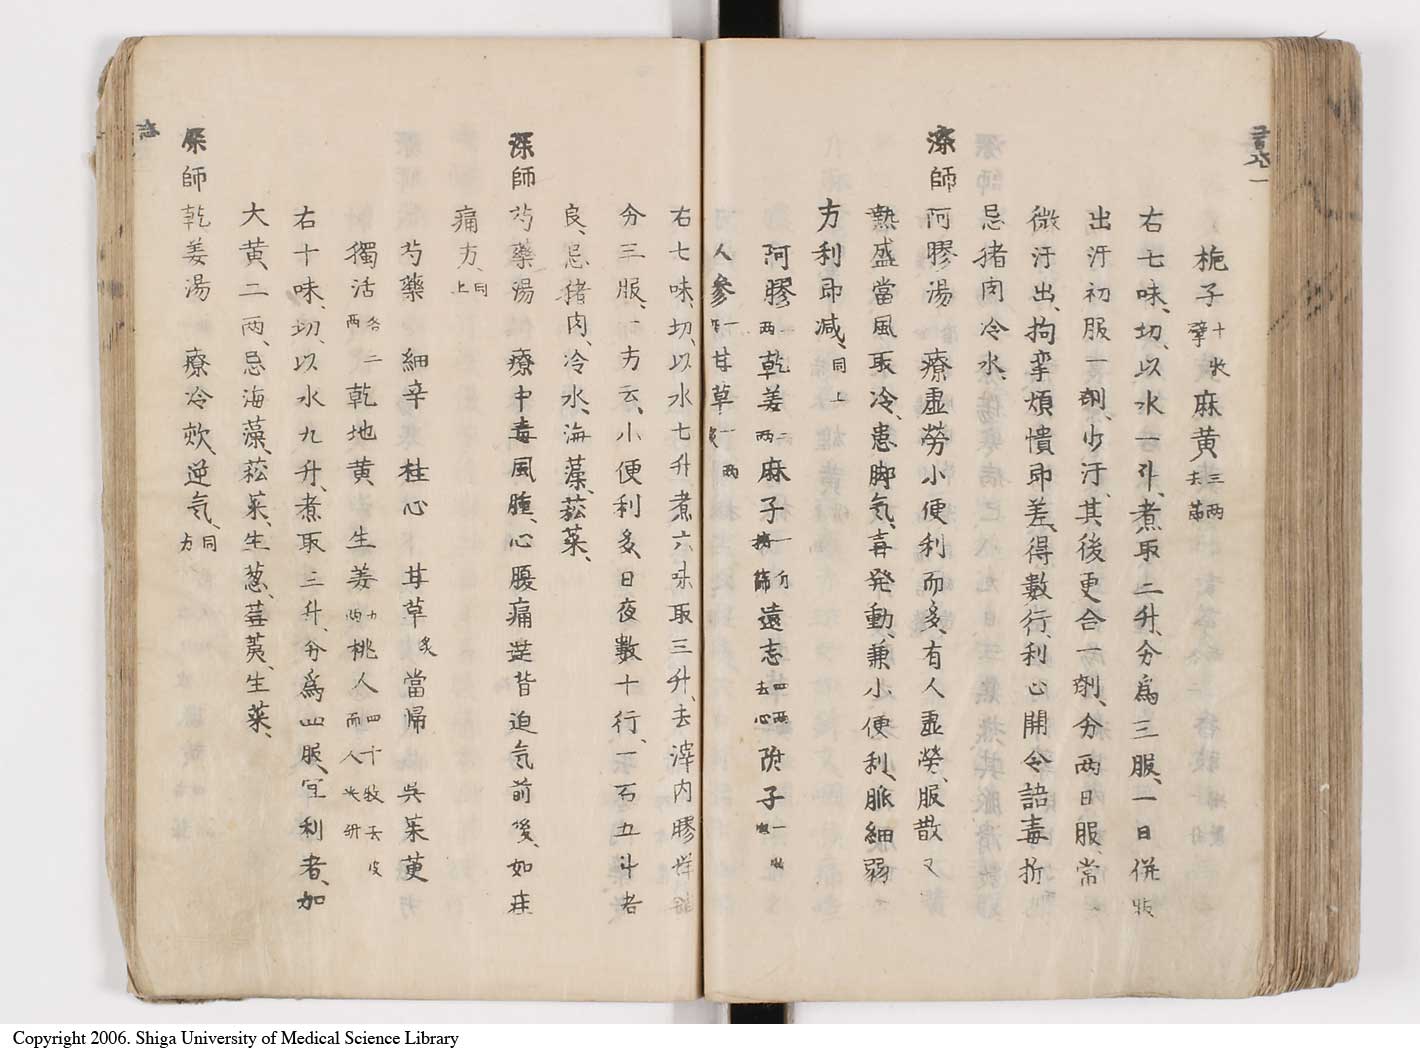 梔子十枚擘麻黄三兩去節
右七味、切、以水一斗、煮取二升、分爲三服、一日併
出汗初服一剤、少汗、其後更合一剤、分兩日服、常
微汗出、拘攣煩憒即差、得數行、利心開令詰毒折
忌猪肉冷水、
深師阿膠湯 療虚勞小便利而多、有人虚勞、服散又
熱盛當風取冷、患脚気、毒発動、兼小便利、脈細弱
方利即减、同上
阿膠一兩乾姜二兩麻子一升擣篩遠志四兩去心附子一
人參一兩甘草一兩炙
右七味、切、以水七升煮六味取三升、去滓内膠烊
分三服、一方云、小便利多、日夜數十行、一石五斗者
良、忌猪肉、冷水、海藻、菘菜、
深師芍藥湯 療中毒風腫、心腹痛達背迫気前後、如疰
痛方、同上
芍藥 細辛 桂心 甘草炙 當帰 呉茱萸
獨活各二兩乾地黄 生姜 兩桃人四十枚去皮 研
右十味、切、以水九升、煮取三升、分爲四服、宜利者、加
大黄二兩、忌海藻、菘菜、生葱、蕪荑、生菜、
深師乾姜湯 療冷欬逆気、同方
Copyright 2006. Shiga University of Medical Science Library